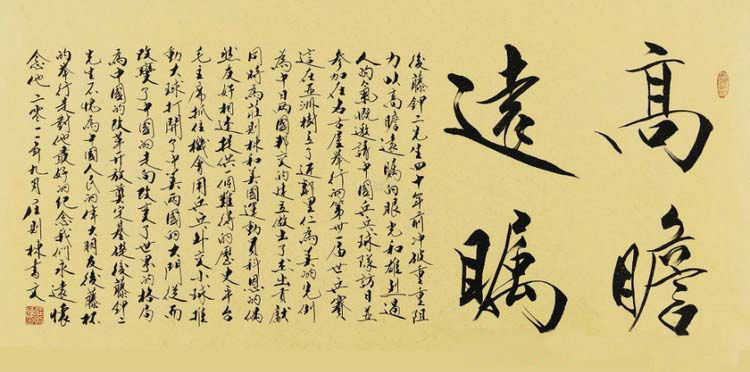 高瞻
遠瞩
後藤钾二先生四十年前冲破重重阻
力以高瞻遠瞩的眼光和雄過
人的氣慨邀請中國乒乓球隊訪日並
參加在名古屋舉行的第卅一届世乒賽
這在亞洲樹立了近鄰里仁為美的先例
為中日两國邦交的建立做出了杰出貢獻
同時為莊則栋和美國運動員科恩的偶
然友好相遇提供一個難得的歷史平台
毛主席抓住機會用乒乓外交小球推
動大球打開了中美两國的大門從而
改變了中國的走向改变了世界的格局
為中國的改革开放奠定基礎後藤钾二
先生不愧為中國人民的偉大朋友後藤杯
的舉行是對他最好的纪念我們永遠懷
念他二零一一年九月庄則棟書文